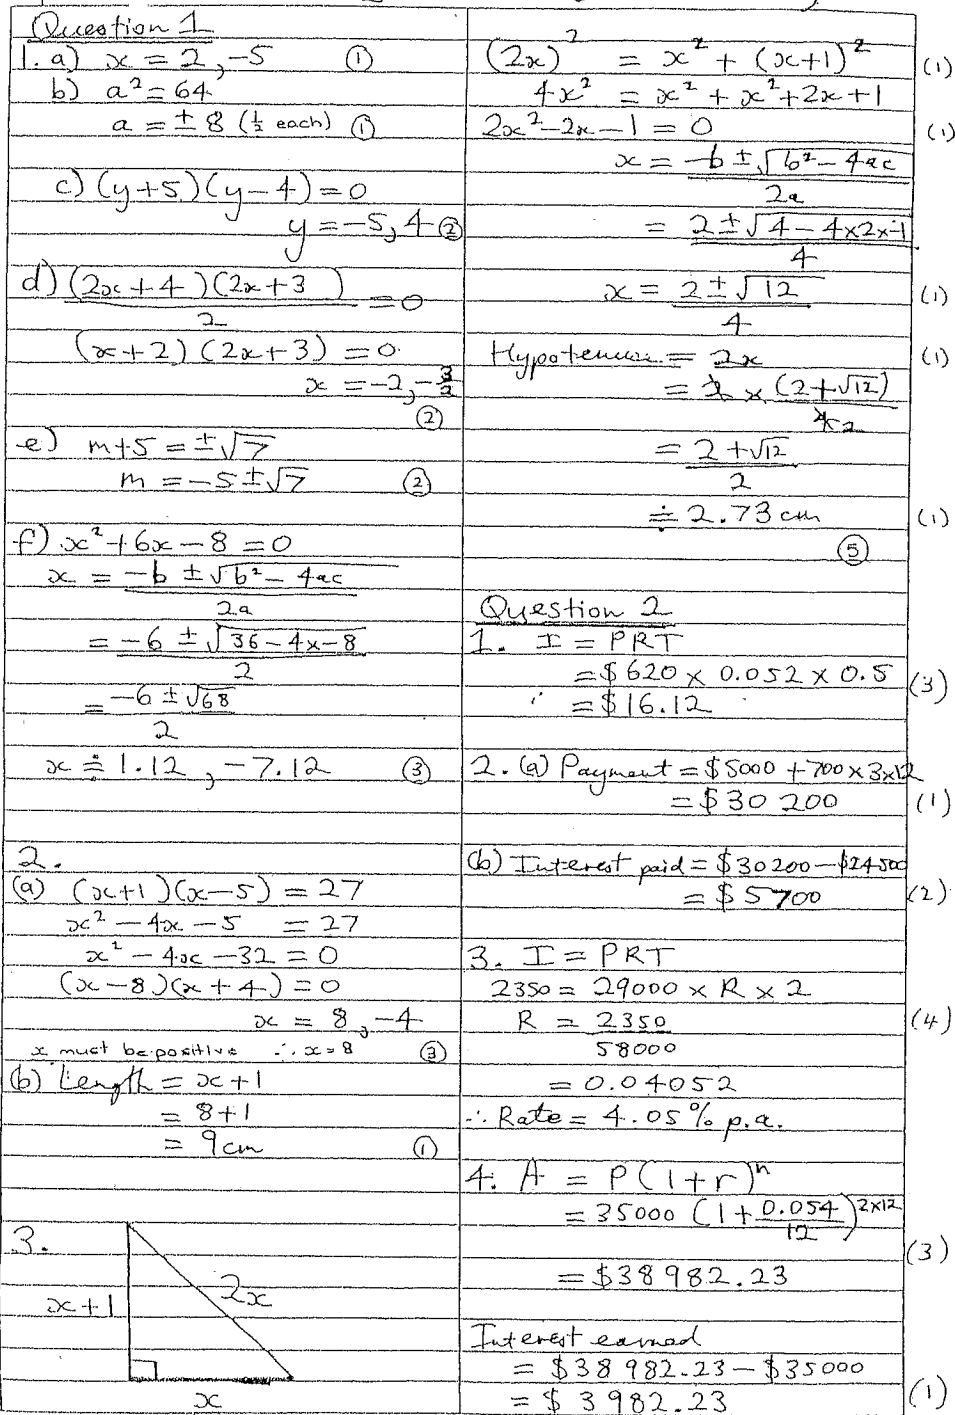 Question 1
1. a) x = 2, -5 ①
b) a² = 64
a = ± 8 (½ each) ①
c) (y+5)(y-4) = 0
y = -5, 4 ②
d) (2x+4)(2x+3) = 0
2
(x+2)(2x+3) = 0
x = -2, -3/2
②
e) m+5 = ±√7
m = -5 ± √7 ②
f) x² + 6x - 8 = 0
x = -b ± √b² - 4ac
2a
= -6 ± √36 - 4x-8
2
= -6 ± √68
2
x ≑ 1.12, -7.12 ③
2.
(a) (x+1)(x-5) = 27
x² - 4x - 5 = 27
x² - 4x - 32 = 0
(x-8)(x+4) = 0
x = 8, -4
x must be positive ∴ x = 8 ③
(b) Length = x+1
= 8+1
= 9cm ①
3.
x+1 2x
x
(2x)² = x² + (x+1)² (1)
4x² = x² + x² + 2x + 1
2x² - 2x - 1 = 0 (1)
x = -b ± √b² - 4ac
2a
= 2 ± √4 - 4x2x-1
4
x = 2 ± √12 (1)
4
Hypotenuse = 2x (1)
= 2 x (2+√12)
4 2
= 2 + √12
2
≑ 2.73 cm (1)
⑤
Question 2
1. I = PRT
= $620 x 0.052 x 0.5 (3)
= $16.12
2. (a) Payment = $5000 + 700x3x12
= $30 200 (1)
(b) Interest paid = $30200 - $24500
= $5700 (2)
3. I = PRT
2350 = 29000 x R x 2
R = 2350 (4)
58000
= 0.04052
∴ Rate = 4.05% p.a.
4. A = P(1+r)ⁿ
= 35000 (1 + 0.054/12)^2x12
(3)
= $38 982.23
Interest earned
= $38 982.23 - $35000
= $ 3 982.23 (1)